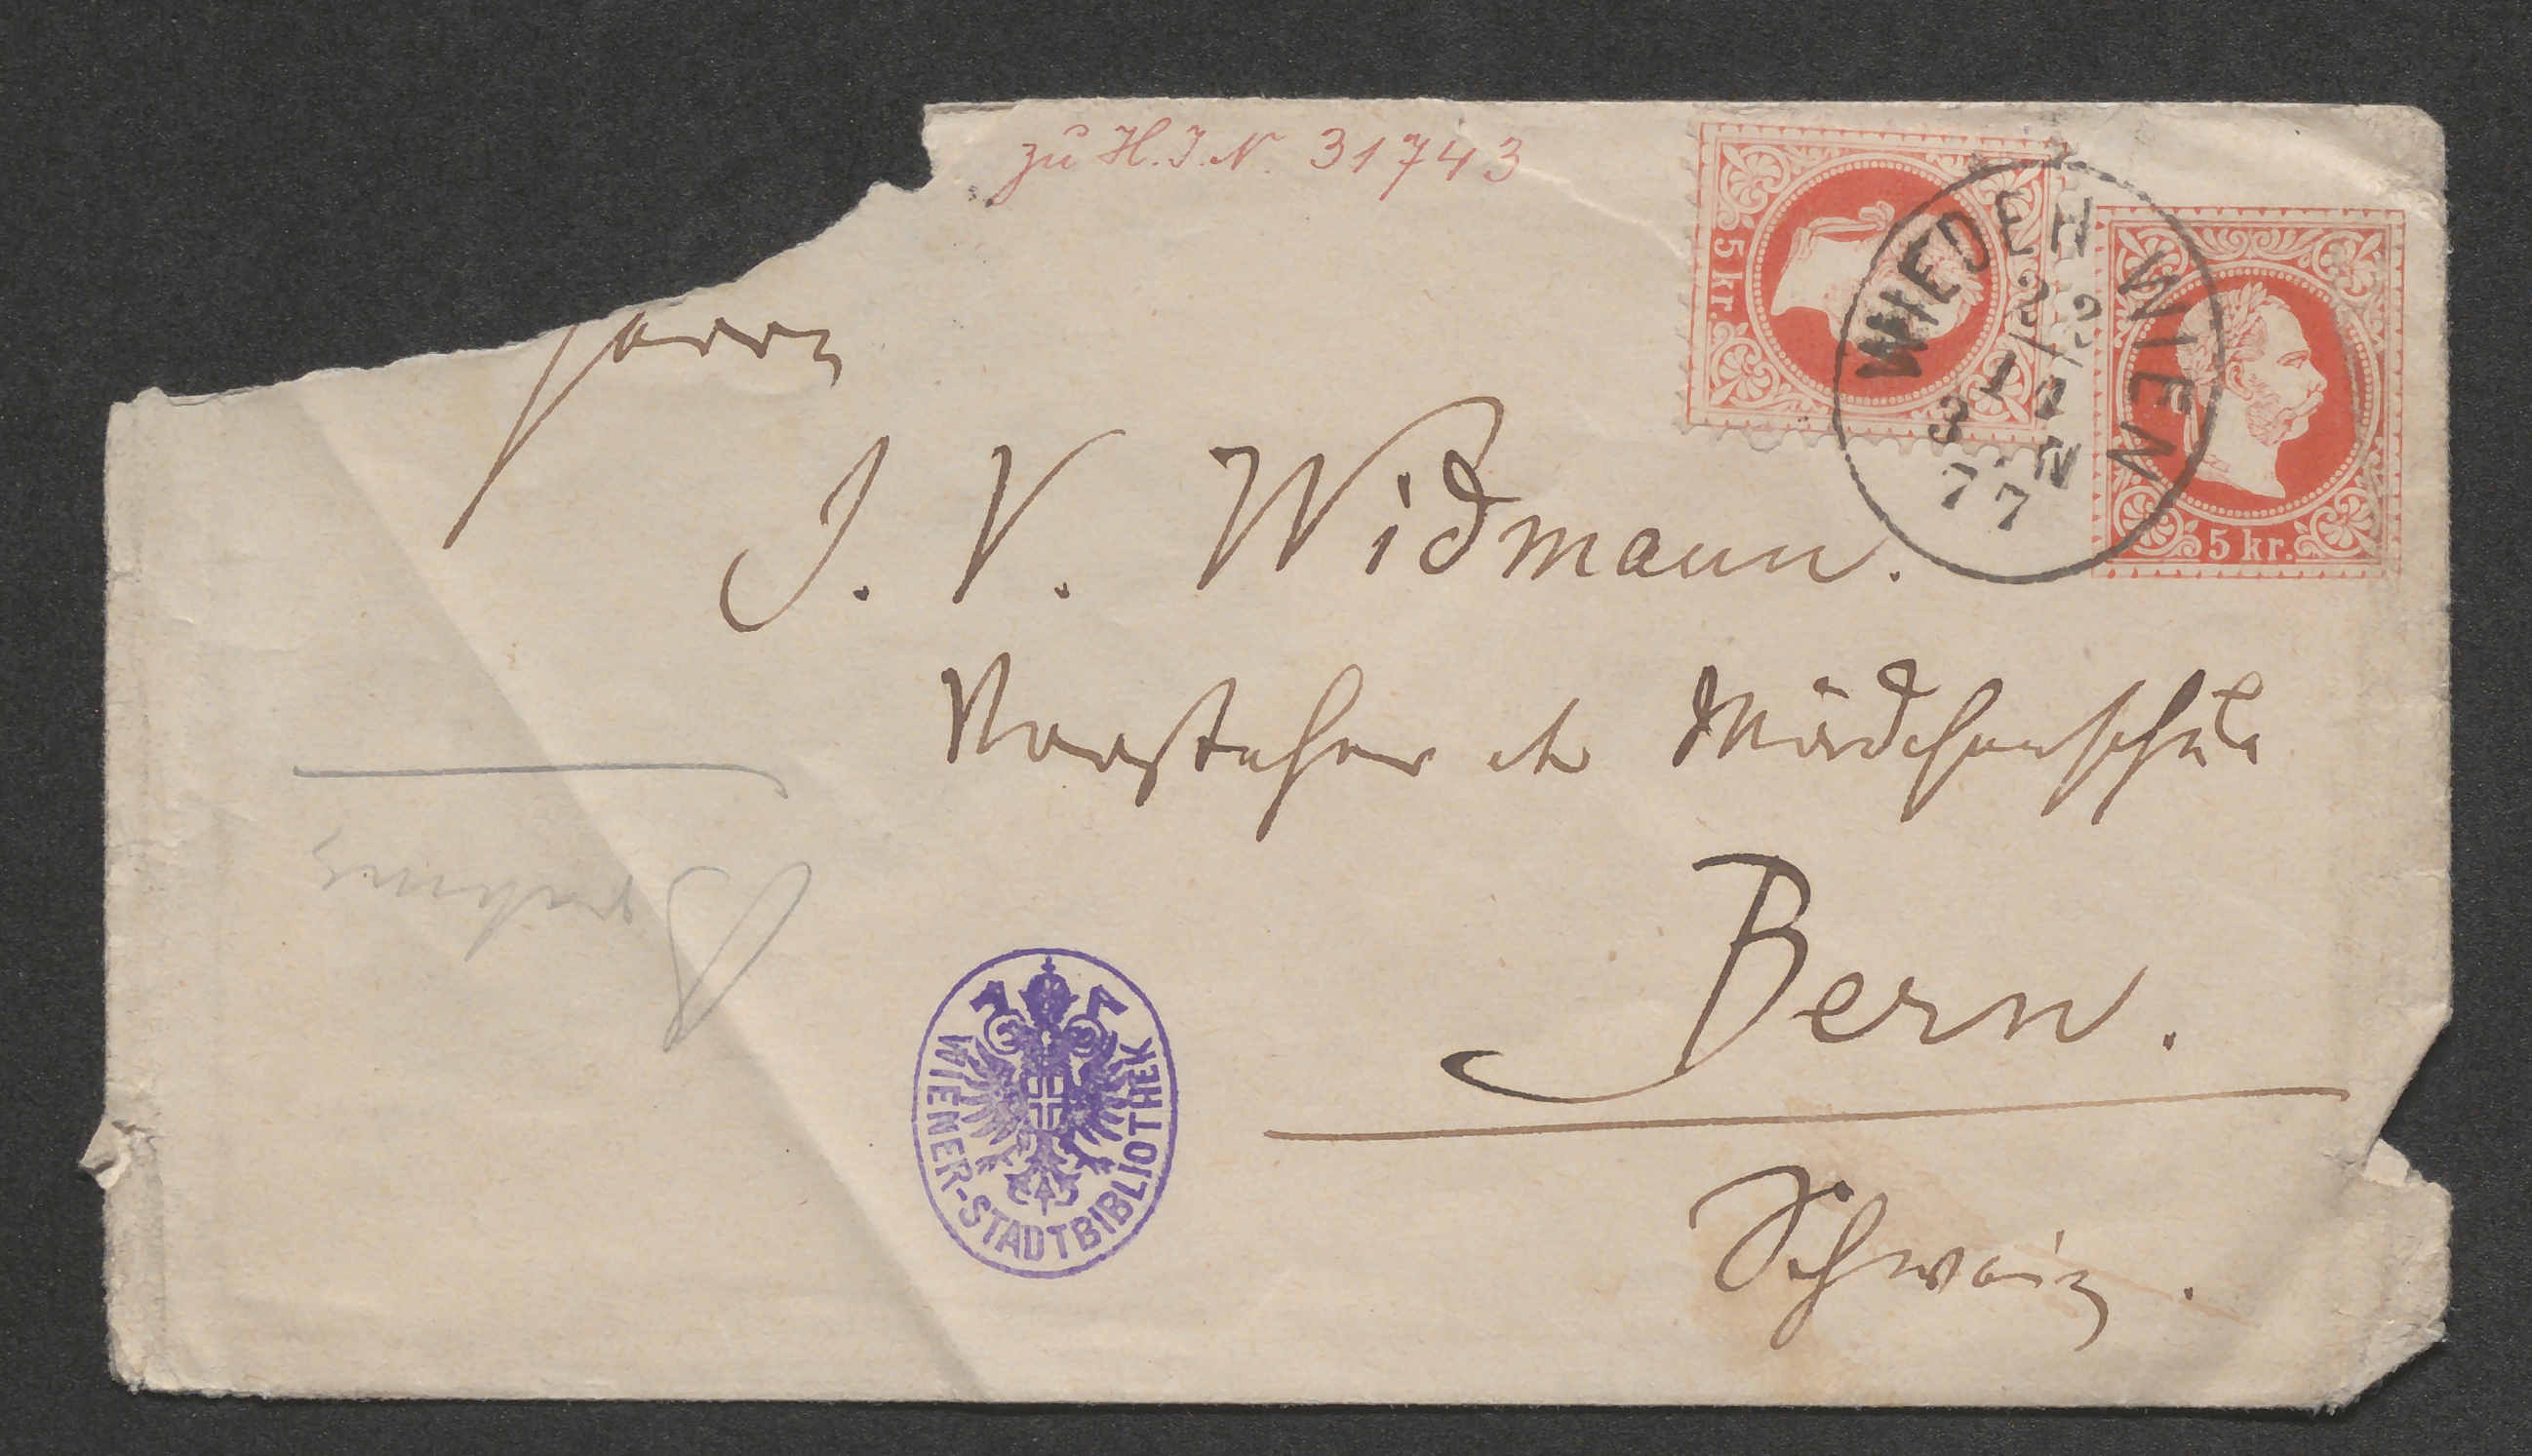 zu H.I.N. 31743
5 kr.
WIEDEN WIEN
22
1
3 N
77
5 kr.
Herrn
J. V. Widmann.
Vorsteher der Mädchenschule
Bern.
Schweiz.
Brahms
WIENER-STADTBIBLIOTHEK